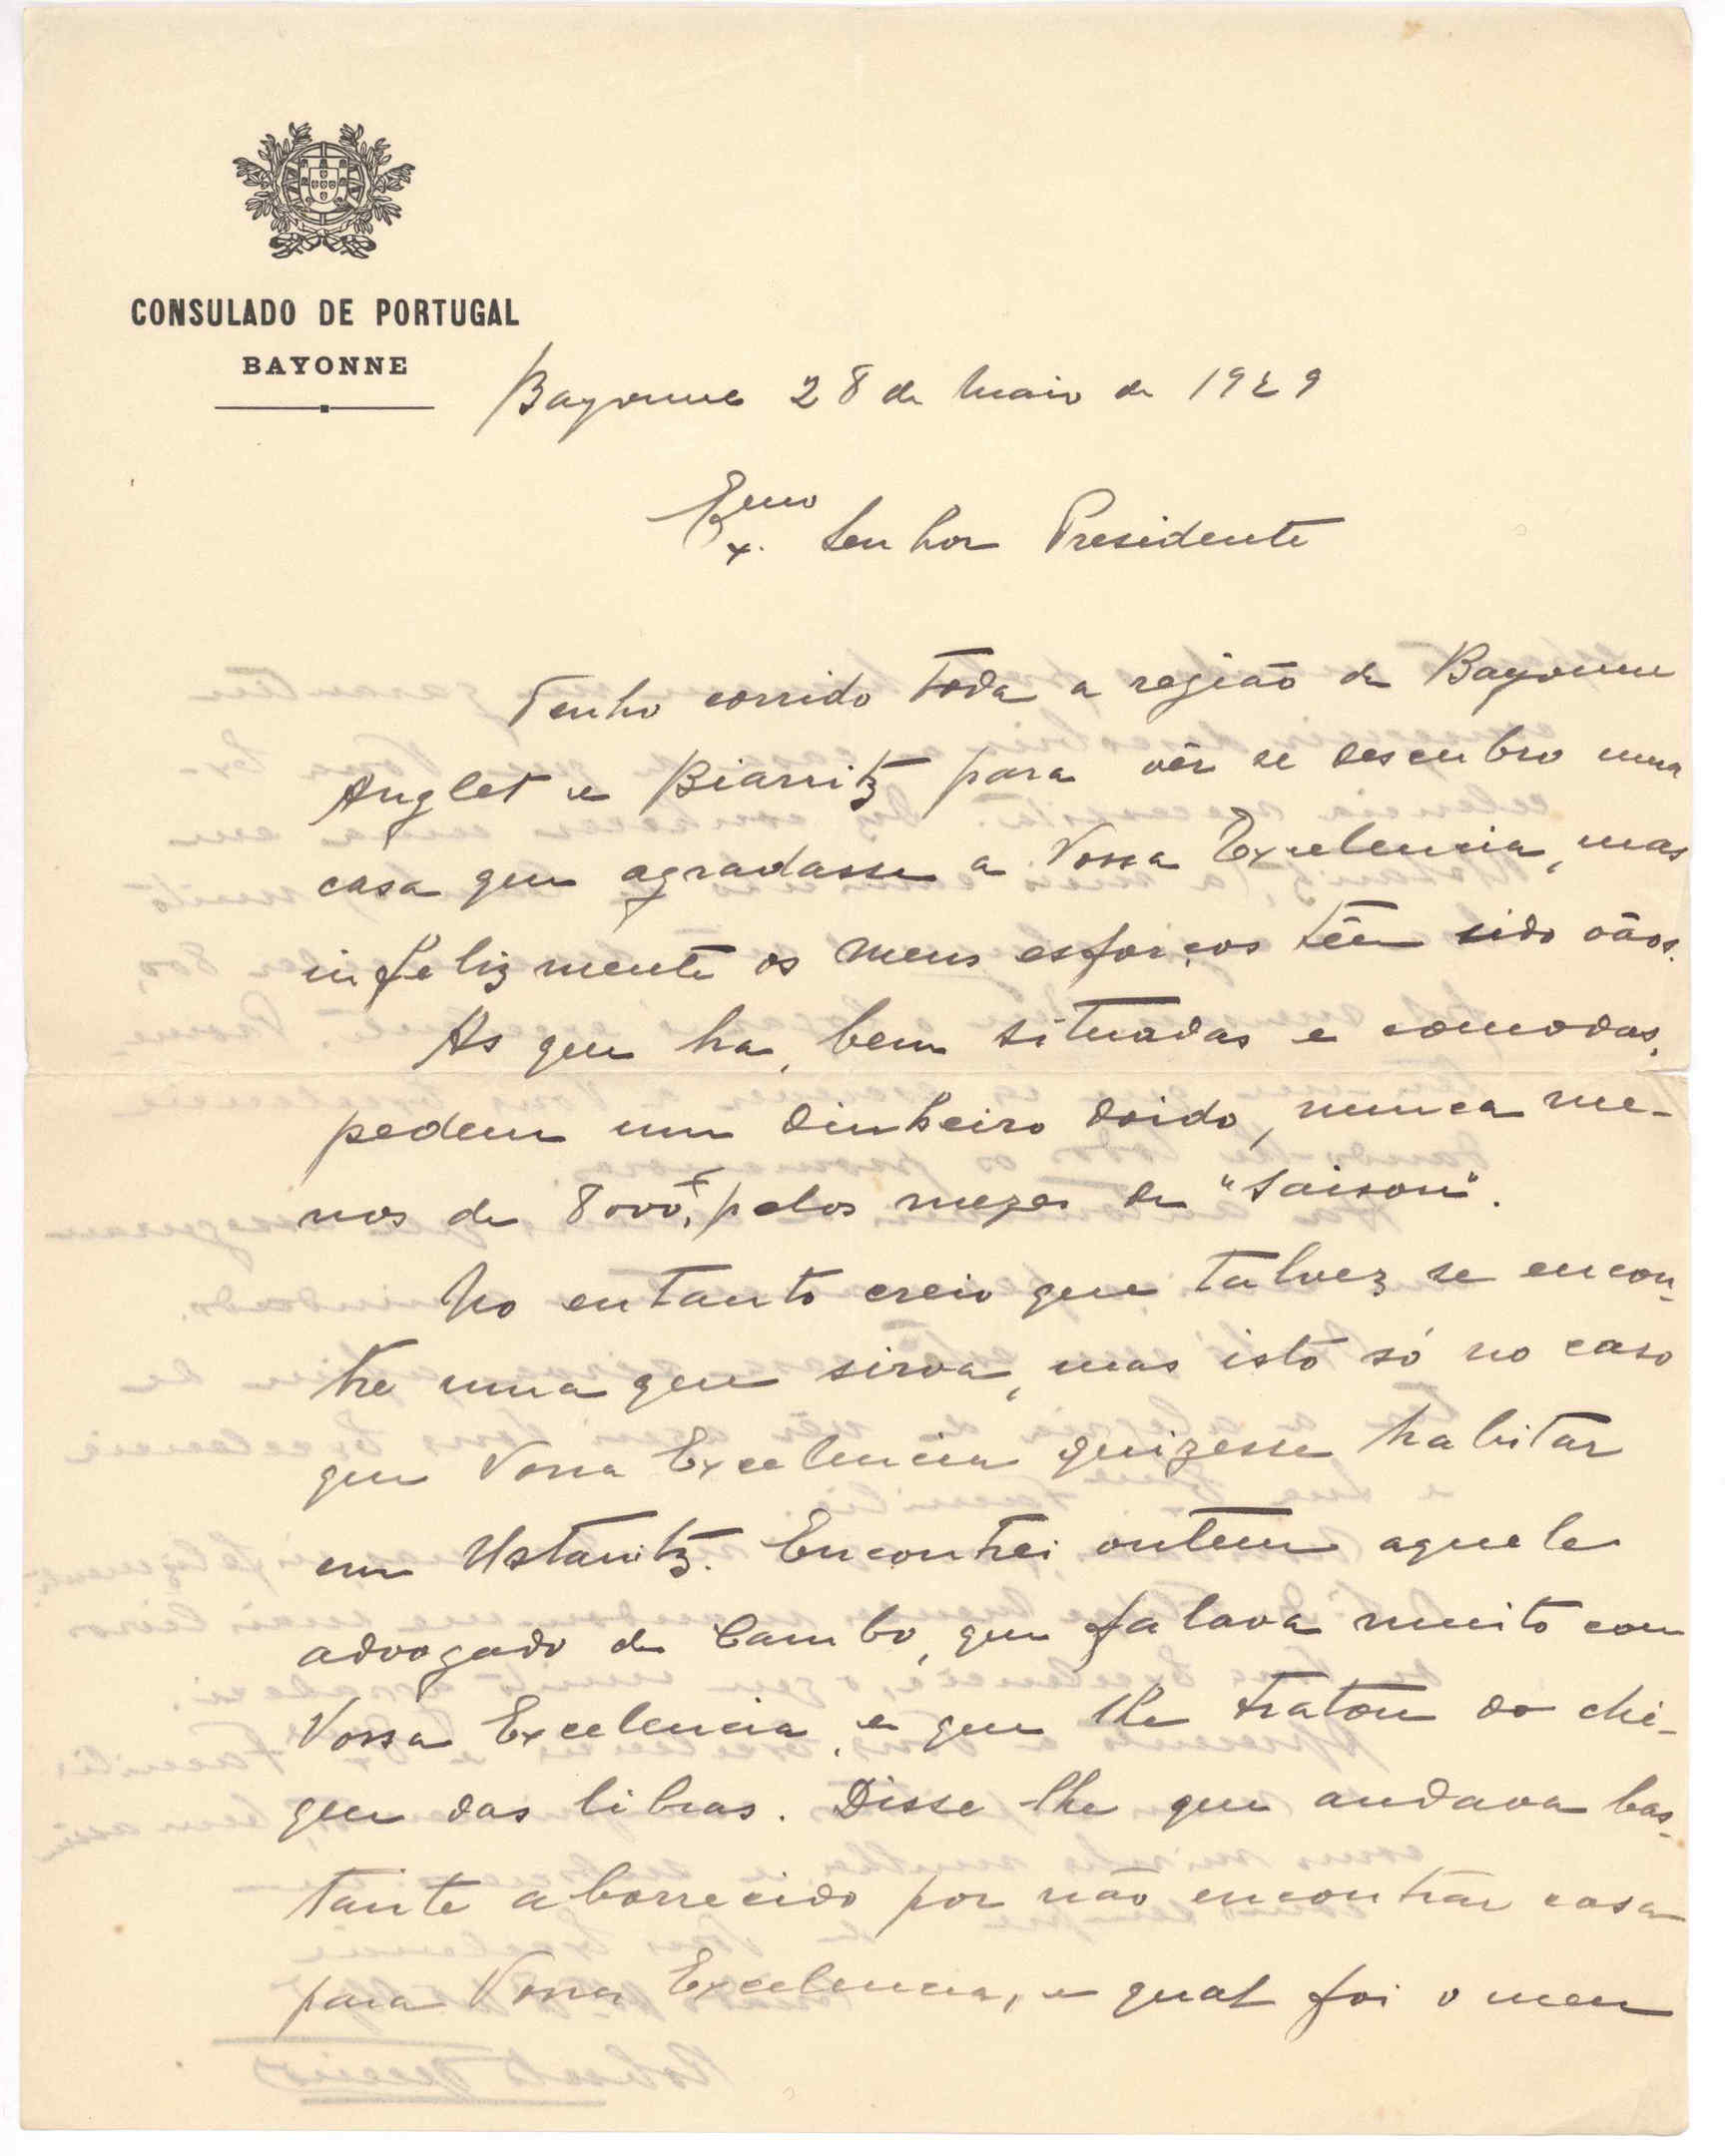 CONSULADO DE PORTUGAL
BAYONNE
Bayonne 28 de Maio de 1929
Exmo. Senhor Presidente
Tenho corrido toda a região de Bayonne
Anglet e Biarritz para vêr se descubro uma
casa que agradasse a Vossa Excelencia, mas
infelizmente os meus esforços têm sido vãos.
As que ha, bem situadas e comodas,
pedem um dinheiro doido, nunca me-
nos de 8000f, pelos mezes de "Saison".
No entanto creio que talvez se encon-
tre uma que sirva, mas isto só no caso
que Vossa Excelencia quizesse habitar
em Ustaritz. Encontrei ontem aquele
advogado de Cambo, que falava muito com
Vossa Excelencia, e que lhe tratou do che-
que das libras. Disse-lhe que andava bas-
tante aborrecido por não encontrar casa
para Vossa Excelencia, e qual foi o meu